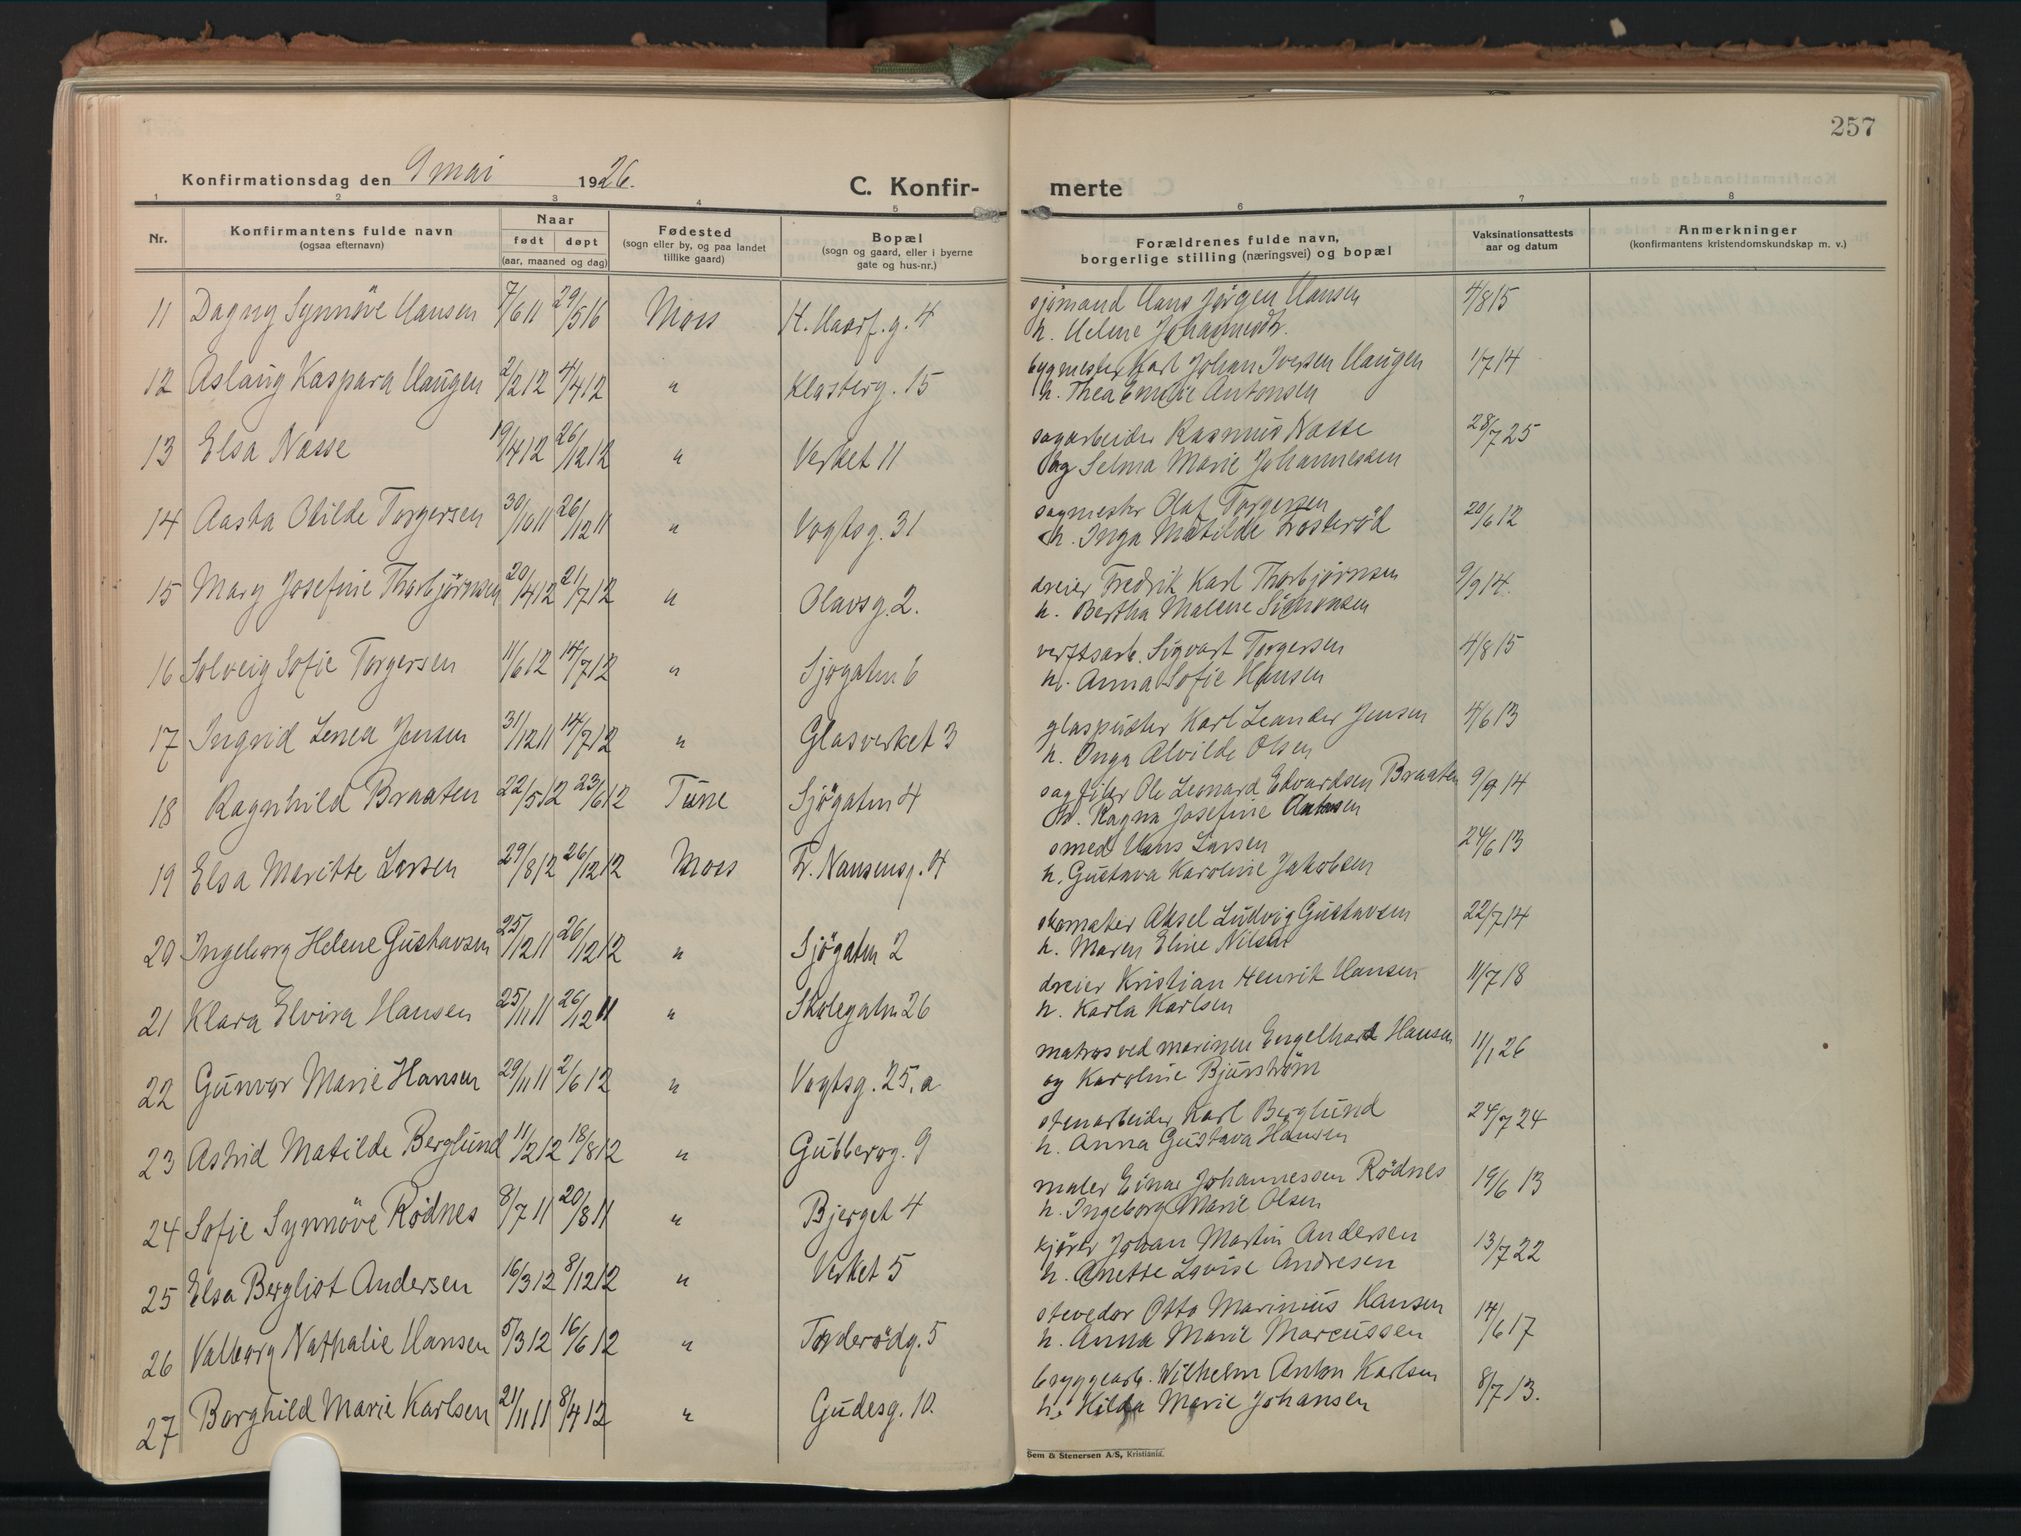 257
Konfirmationsdag den 9 mai 1926.
C. Konfirmerte
1 2 3 4 5 6 7 8
Nr.
Konfirmantens fulde navn
(ogsaa efternavn)
Naar
født døpt
(aar, maaned og dag)
Fødested
(sogn eller by, og paa landet
tillike gaard)
Bopæl
(sogn og gaard, eller i byerne
gate og hus-nr.)
Forældrenes fulde navn,
borgerlige stilling (næringsvei) og bopæl
Vaksinationsattests
aar og datum
Anmerkninger
(konfirmantens kristendomskundskap m. v.)
11 Dagny Synnöve Hansen 7/6 11 29/5 16 Moss H. Haarf.g. 4 sjömand Hans Jörgen Hansen 4/8 15
h. Helene
12 Aslaug Kaspara Haugen 2/2 12 4/4 12 " 15 bygmester Karl Johan Iversen Haugen 1/7 14
h. Thea Emilie Antonsen
13 Elsa Næsse 19/4 12 26/12 12 " Verket 11 sagarbeider Rasmus Næsse 28/7 25
og Selma Marie Johannesen
14 Aasta Otilde Torgersen 30/10 11 26/12 11 " Vogtsg. 31 sagmester Olaf Torgersen 20/6 12
h. Inga Matilde Trosteröd
15 Mary Josefine Thorbjörnsen 20/4 12 21/7 12 " Olavsg. 2. dreier Fredrik Karl Thorbjörnsen 9/9 14.
h. Bertha Malene Simonsen
16 Solveig Sofie Torgersen 11/6 12 14/7 12 " Sjögaten 6 verftsarb. Sigvart Torgersen 4/8 15
h. Anna Sofie Hansen
17 Ingrid Lenea Jensen 31/12 11 14/7 12 " Glasverket 3 glaspuster Karl Leander Jensen 4/6 13
h. Inga Alvilde Olsen
18 Ragnhild Braaten 22/5 12 23/6 12 Tune Sjögaten 4 sagfiler Ole Leonard Edvardsen Braaten 9/9 14
h. Ragna Josefine Antonsen
19 Elsa Maritte Larsen 29/8 12 26/12 12 Moss Fr. Nansensg. 4 smed Hans Larsen 24/6 13
h. Gustava Karoline Jakobsen
20 Ingeborg Helene Gustavsen 25/12 11 26/12 12 " Sjögaten 2 skomaker Aksel Ludvig Gustavsen 22/7 14
h. Maren Eline Nilsen
21 Klara Elvira Hansen 25/11 11 26/12 11 " Skolegaten 26 dreier Kristian Henrik Hansen 11/7 18
h. Karla Karlsen
22 Gunvor Marie Hansen 29/11 11 2/6 12 " Vogtsg. 25.a matros ved marinen Engelhart Hansen 11/1 26
og Karoline Bjurström
23 Astrid Matilde Berglund 11/2 12 18/8 12 " Gubberog. 9 stenarbeider Karl Berglund 24/7 24
h. Anna Gustava Hansen
24 Sofie Synnöve Rödnes 8/7 11 20/8 11 " Bjerget 4 maler Einar Johannessen Rödnes 19/6 13
h. Ingeborg Marie Olsen
25 Elsa Bergliot Andersen 16/3 12 8/12 12 " Verket 5 kjörer Johan Martin Andersen 13/7 22
h. Anette Lovise Andresen
26 Valborg Nathalie Hansen 5/3 12 16/6 12 " Tonderödg. 5 stevedor Otto Marinius Hansen 14/6 17
h. Anna Marie Marcussen
27 Borghild Marie Karlsen 21/11 11 8/4 12 " Gudesg. 10. byggearb. Wilhelm Anton Karlsen 8/7 13.
h. Hilda Marie Johansen
Sem & Stenersen A/S, Kristiania.